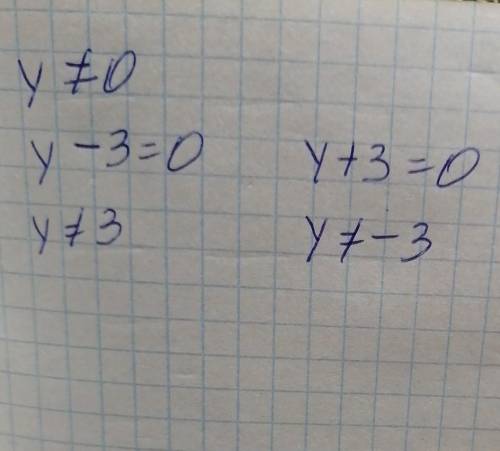 y ≠ 0
y - 3 = 0
y ≠ 3
y + 3 = 0
y ≠ - 3